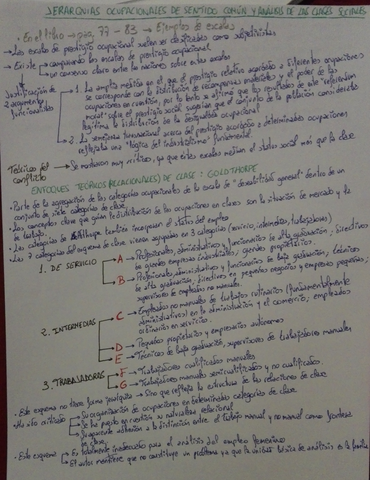 JERARQUIAS OCUPACIONALES DE SENTIDO COMÚN Y ANÁLISIS DE LAS CLASES SOCIALES
• En el libro → pag. 77 - 83 → Ejemplos de escalas
→ Las escalas de prestigio ocupacional suelen ser descritas como subjetivistas
→ Existe → comparando las escalas de prestigio ocupacional
→ un consenso claro entre las naciones sobre estas escalas
Justificación de
2 argumentos
funcionalistas
1. La amplia medida en el que el prestigio relativo asociado a diferentes ocupaciones
se corresponde con la distribución de recompensas materiales y el poder de las
ocupaciones en cuestión, por lo tanto se afirma que los resultados de este "referendum
moral" sobre el prestigio social sugerían que el conjunto de la población consideraba
legítima la distribución en la desigualdad ocupacional
2. La semejanza internacional acerca del prestigio asociado a determinadas ocupaciones
reflejaba una "lógica del industrialismo" fundamental.
Teóricos del
conflicto
→ Se mostraron muy críticos, ya que estas escalas medían el status social más que la clase
ENFOQUES TEÓRICOS (RELACIONALES) DE CLASE: GOLDTHORPE
• Parte de la agregación de las categorías ocupacionales de la escala de "deseabilidad general" dentro de un
conjunto de siete categorías de clase.
• Los conceptos clave que guían la distribución de las ocupaciones en clases son la situación de mercado y la
de trabajo.
• Las categorías de Goldthorpe también incorporan el status del empleo
• Las 7 categorías del esquema de clase vienen agrupadas en 3 categorías (servicio, intermedias, trabajadores)
1. DE SERVICIO
A → Profesionales, administrativos y funcionarios de alta graduación, directivos
de grandes empresas industriales, grandes propietarios.
B → Profesionales, administrativos y funcionarios de baja graduación, técnicos
de alta graduación, directivos en pequeños negocios y empresas pequeñas;
supervisores de empleados no manuales
2. INTERMEDIAS
C → Empleados no manuales de trabajos rutinarios (fundamentalmente
administrativos) en la administración y el comercio; empleados
ordinarios en servicios
D → Pequeños propietarios y empresarios autónomos
E → Técnicos de baja graduación, supervisores de trabajadores manuales
3. TRABAJADORAS
F → Trabajadores cualificados manuales
G → Trabajadores manuales semicualificados y no cualificados
• Este esquema no tiene forma jerárquica → Sino que refleja la estructura de las relaciones de clase
• Ha sido criticado
→ Su organización de ocupaciones en determinadas categorías de clase.
→ Se ha puesto en cuestión su naturaleza relacional
→ Su aparente adhesión a la distinción entre el trabajo manual y no manual como frontera
de clase
• Este esquema
→ Es totalmente inadecuado para el análisis del empleo femenino
→ El autor mantiene que no constituye un problema ya que la unidad básica de análisis es la familia